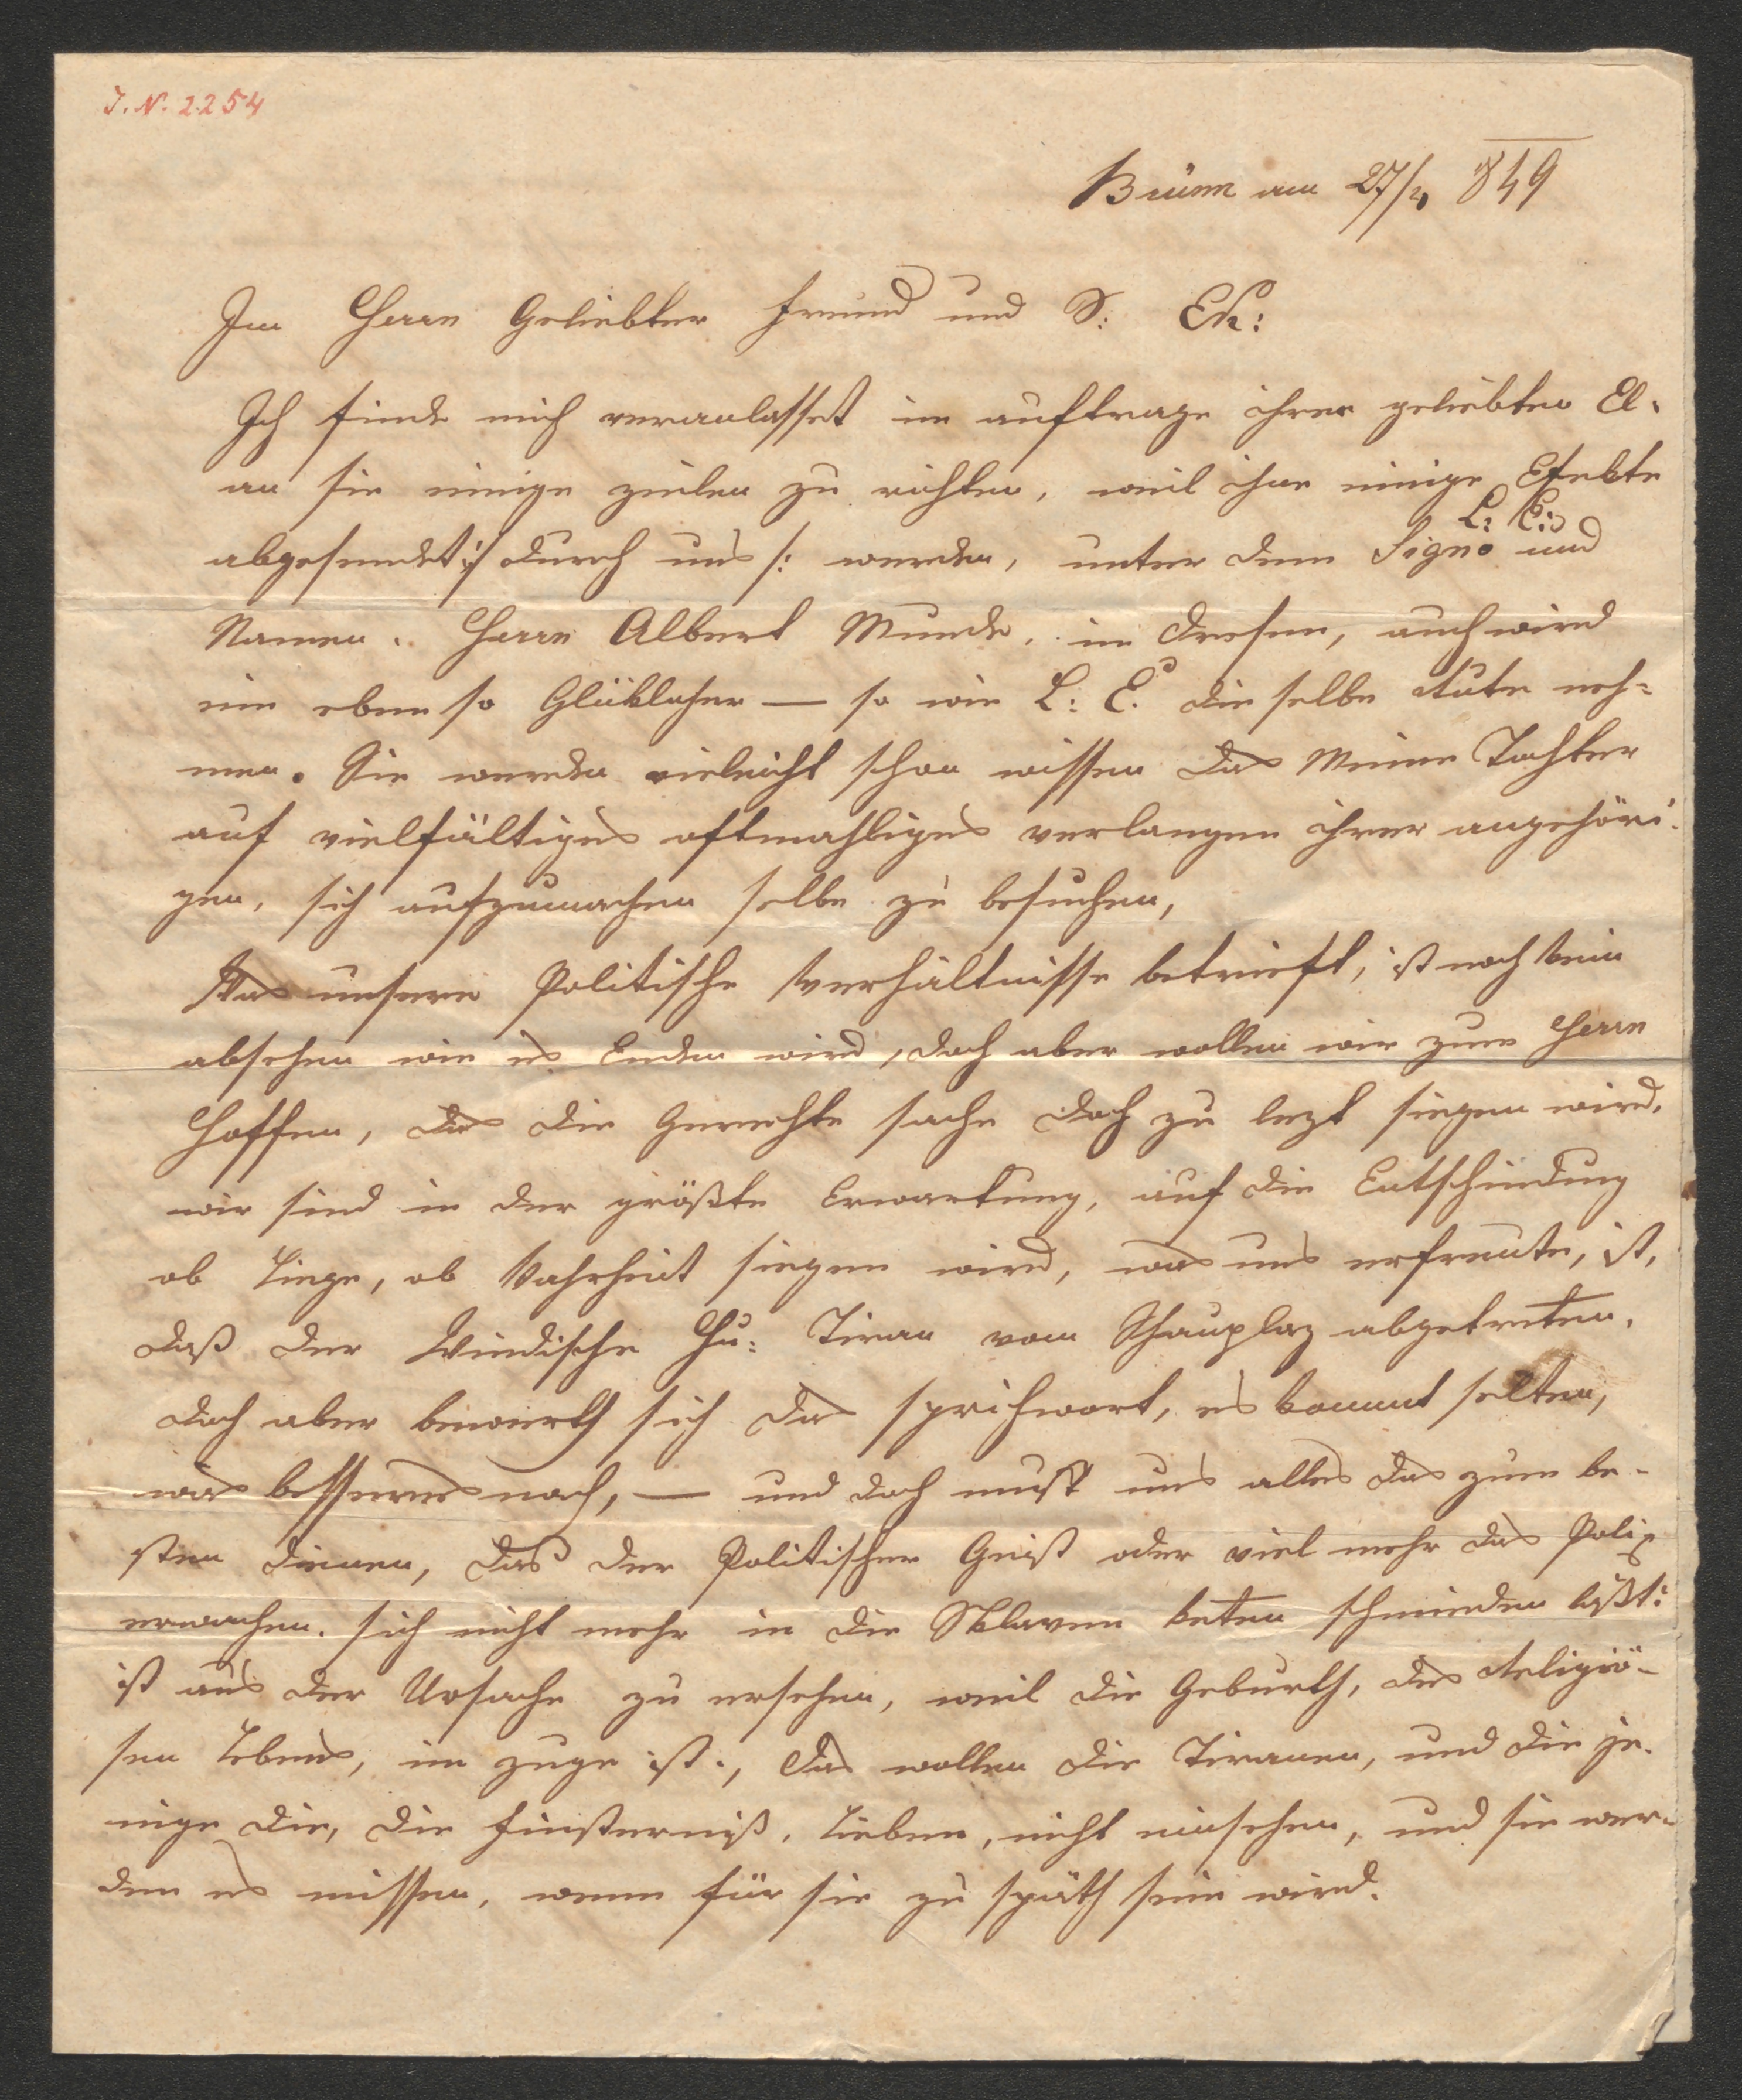 J. N. 2254
Brünn am 27/4 849
Im Herrn Geliebter Freund und S: Eh:
Ich finde mich veranlasset im auftrage ihrer geliebten El.
an sie einige zeilen zu richten, weil ihr einige Efekte
L: E:
abgesendet :/ durch uns /: werden, unter dem Signo und
Namen. Herrn Albert Munde. in Dresen, auch wird
ein eben so Glüklicher — so wie L: E. die selbe Rute neh=
men. Sie werden vieleicht schon wissen das Meine Tochter
auf vielfältiges oftmahliges verlangen ihrer angehöri=
gen, sich aufzumachen selbe zu besuchen,
Was unsere Politische Verhältnisse betrieft, ist noch kein
absehen wie es Enden wird, doch aber wollen wir zum Herrn
Hoffen, das die Gerechte sache doch zu lezt siegen wird.
wir sind in der größte Erwartung, auf die Entscheidung
ob Liege, ob Wahrheit siegen wird, was uns erfreute, ist,
daß der Windische Gr: Tiran vom Schauplaz abgetreten.
doch aber bewierth sich das sprichwort, es kommt selten,
was besseres nach, — und doch muß uns alles das zum be-
sten dienen, das der Politischer Geist oder viel mehr das
erwachen. sich nicht mehr in die Sklaven keten schmieden läßt:
ist aus der Ursache zu ersehen, weil die Geburth, des Religiö-
sen Lebens, im zuge ist., das wollen die Tiranen, und die je-
nige die, die Finsterniß, Lieben, nicht einsehen, und sie wer-
den es missen, wenn für sie zu späth sein wird.